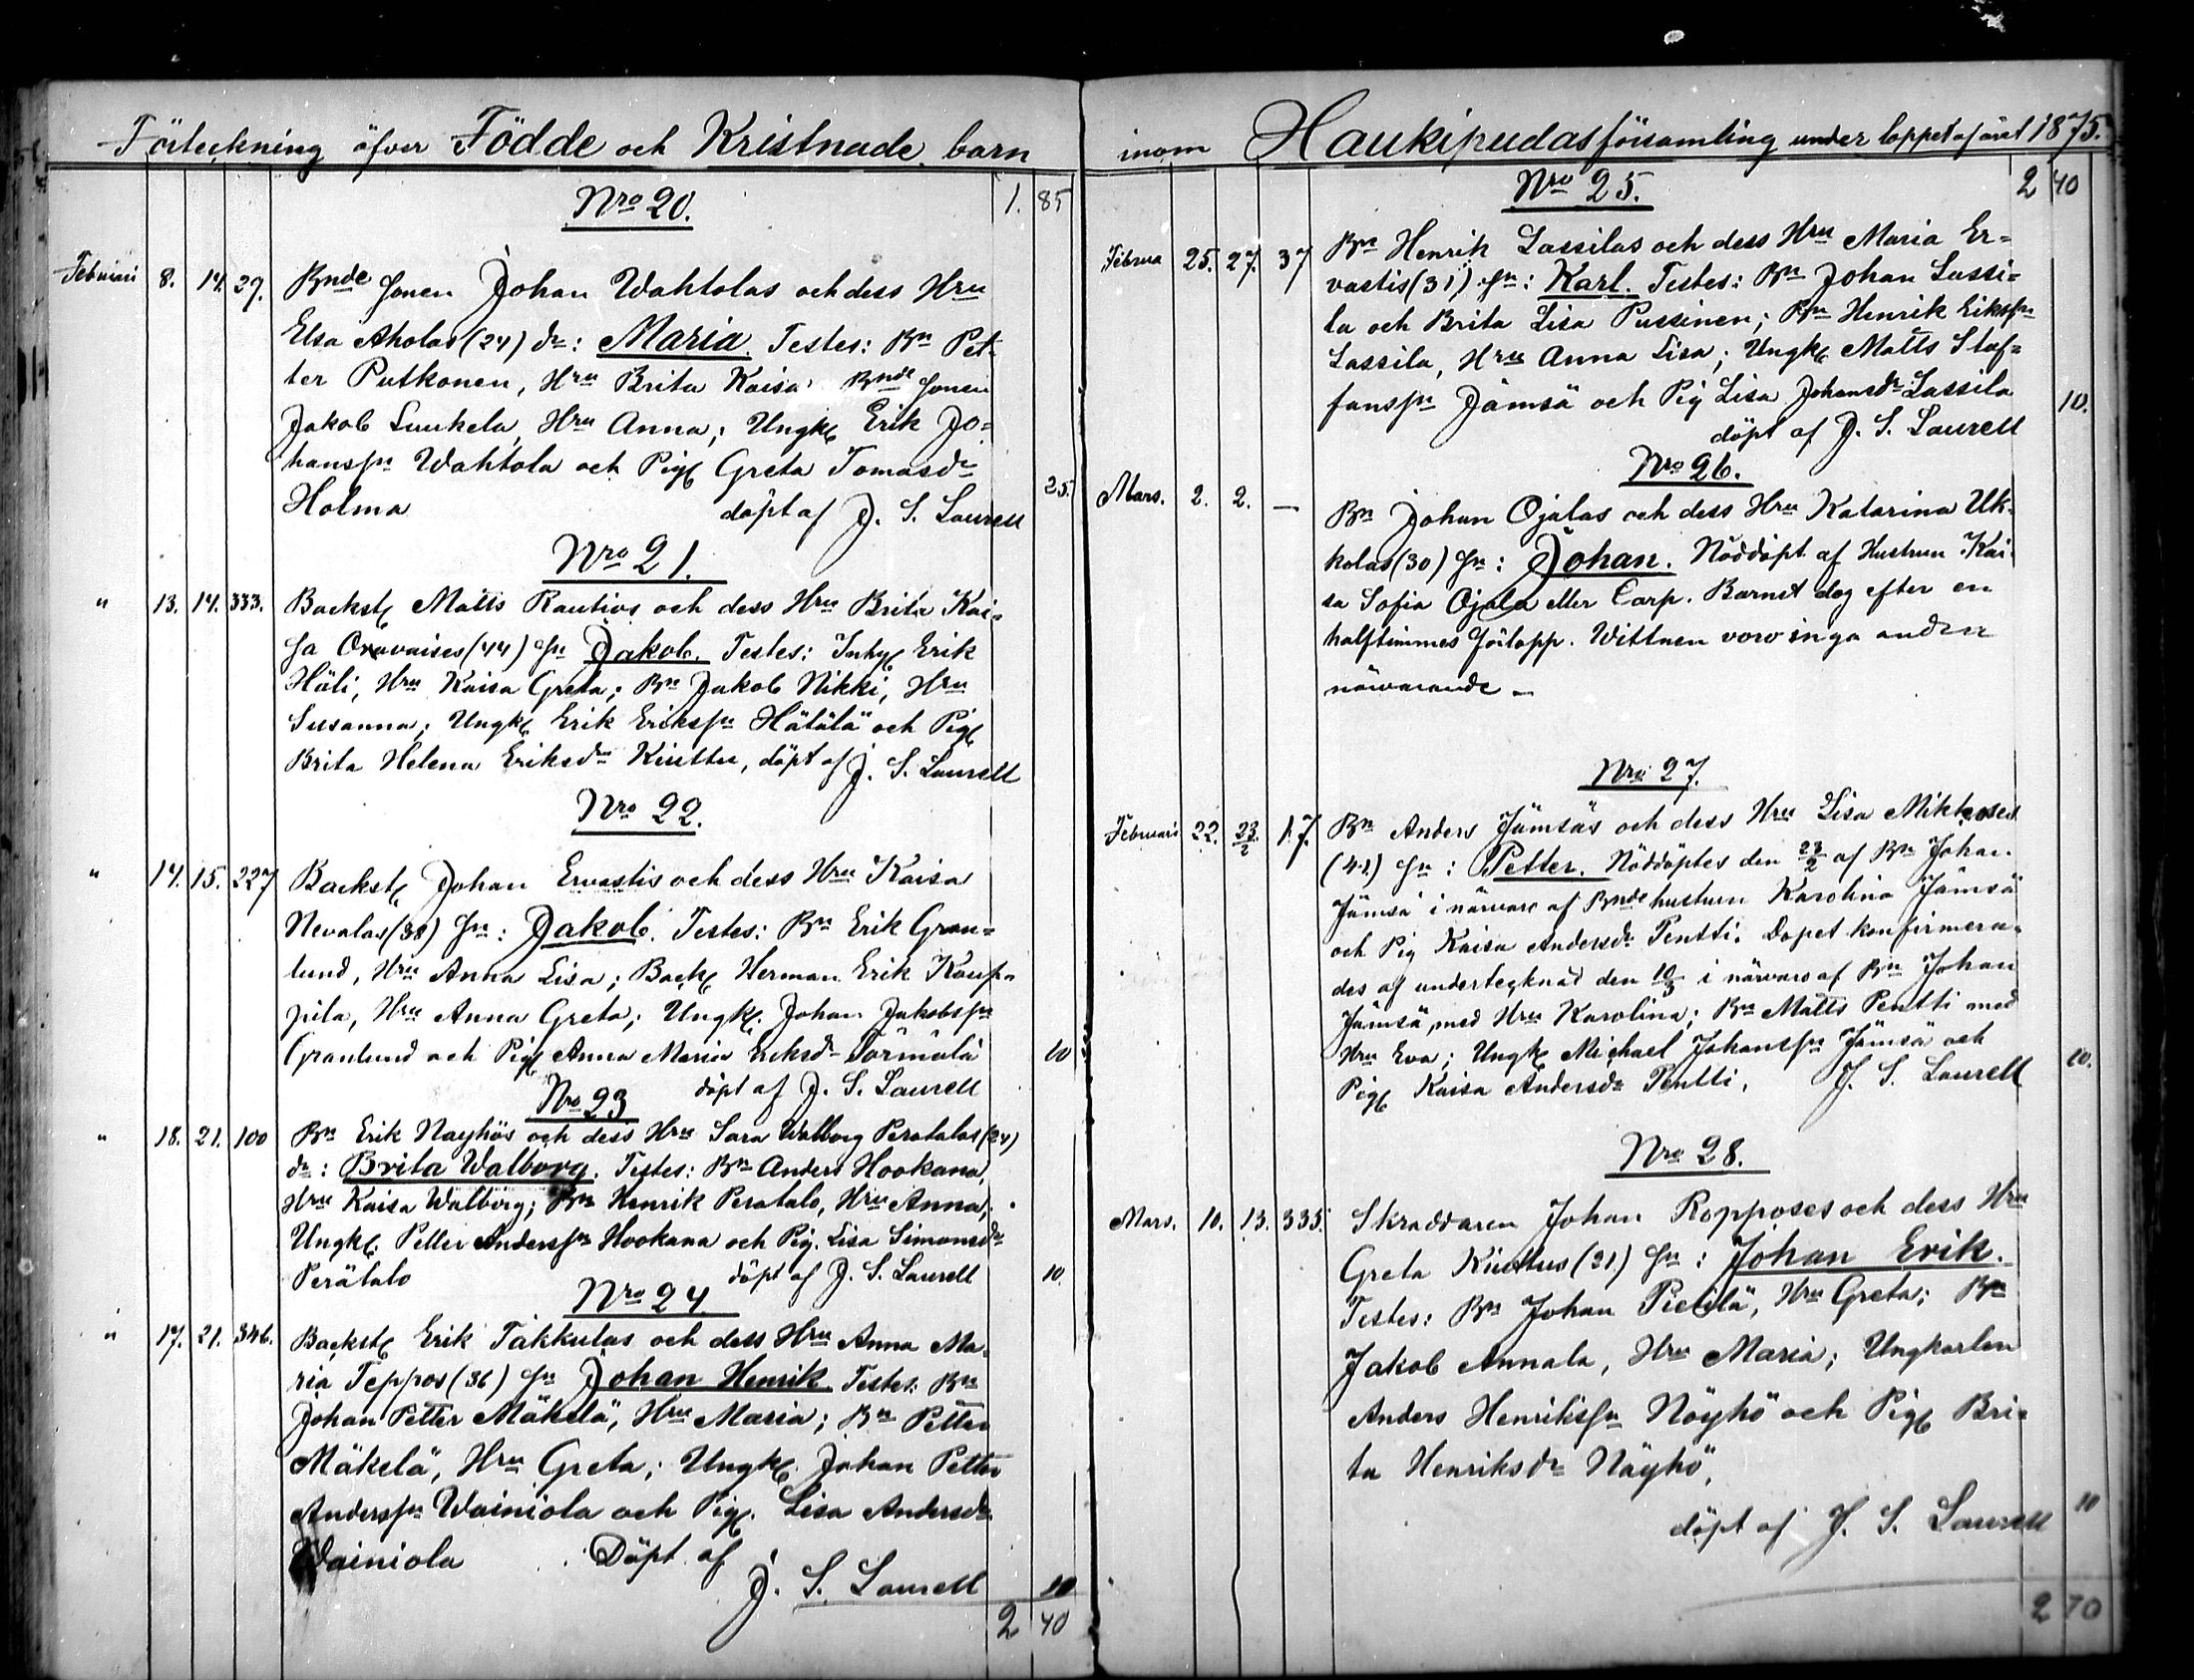 Förteckning öfver Födde och Kristnade barn
Nro 20. 1. 85
Februari 8. 14. 29. Bnde sonen Johan Wahtolas och dess Hru
Elsa Aholas (24) dr: Maria. Testes: Bn Pet-
ter Putkonen, Hru Brita Kaisa; Bnde sonen
Jakob Luukela, Hru Anna; Ungk Erik Jo=
hanssn Wahtola och Pig Greta Tomasdr
Holma döpt af J. S. Laurell 25.
Nro 21.
" 13. 14. 333. Backst Matts Rautios och dess Hru Brita Kai-
sa Oravaises (44) sn Jakob. Testes: Inhy Erik
Häli, Hru Kaisa Greta; Bn Jakob Nikki, Hru
Susanna; Ungk Erik Erikssn Hätälä och Pig
Brita Helena Eriksdr Kuittu, döpt af J. S. Laurell
Nro 22.
" 14. 15. 227 Backst Johan Ervastis och dess Hru Kaisa
Nevalas (38) sn: Jakob. Testes: Bn Erik Gran=
lund, Hru Anna Lisa; Back Herman Erik Kaup-
pila, Hru Anna Greta; Ungk. Johan Jakobssn
Granlund och Pig Anna Maria Eriksd Törmälä 10
döpt af J. S. Laurell
Nro 23
" 18. 21. 100 Bn Erik Nayhös och dess Hru Sara Walborg Peratalos (24)
dr: Brita Walborg. Testes: Bn Anders Hookana,
Hru Kaisa Walborg; Bn Henrik Peratalo, Hru Anna;
Ungk. Petter Anderssn Hookana och Pig. Lisa Simonsdr
Perätalo döpt af J. S. Laurell 10.
Nro 24
" 17. 21. 346. Backst Erik Takkulas och dess Hru Anna Ma-
ria Teppos (36) sn Johan Henrik. Testes: Bn
Johan Petter Mäkelä, Hru Maria; Bn Petter
Mäkelä, Hru Greta; Ungk. Johan Petter
Anderssn Wainiola och Pig. Lisa Andersdr
Wainiola Döpt af
J. S. Laurell 10
2 40
inom Haukipudas församling under loppet af året 1875.
Nro 25. 2 40
Februa 25. 27. 37 Bn Henrik Lassilas och dess Hru Maria Er=
vastis (31) sn: Karl. Testes: Bn Johan Lassi=
la och Brita Lisa Pussinen; Bn Henrik Erikssn
Lassila, Hru Anna Lisa; Ungk Matts Staf=
fanssn Jämsä och Pig Lisa Johansdr Lassila 10.
döpt af J. S. Laurell
Nro 26.
Mars. 2. 2. — Bn Johan Ojalas och dess Hru Katarina Uk-
kolas (30) sn: Johan. Nöddöpt af Hustrun Kai-
sa Sofia Ojala eller Carp. Barnet dog efter en
halftimmes förlopp. Wittnen voro inga andra
närvarande –
Nro 27.
Februari 22. 23/2 17. Bn Anders Jämsäs och dess Hru Lisa
(41) sn: Petter. Nöddöptes den 23/2 af Bn Johan
Jämsä i närvaro af Bnde hustrun Karolina Jämsä
och Pig Kaisa Andersdr Pentti. Dopet konfirmera-
des af undertecknad den 10/3 i närvaro af Bn Johan
Jämsä, med Hru Karolina; Bn Matts Pentti med
Hru Eva; Ungk Michael Johanssn Jämsä och
Pig Kaisa Andersdr Pentti. J. S. Laurell 10.
Nro 28.
Mars. 10. 13. 335. Skraddaren Johan Ropposes och dess Hru
Greta Kuittus (21) sn: Johan Erik.
Testes: Bn Johan Pietilä, Hru Greta; Bn
Jakob Annala, Hru Maria; Ungkarlen
Anders Henrikssn Nöyhö och Pig Bri-
ta Henriksdr Näyhö,
döpt af J. S. Laurell 10
2 70